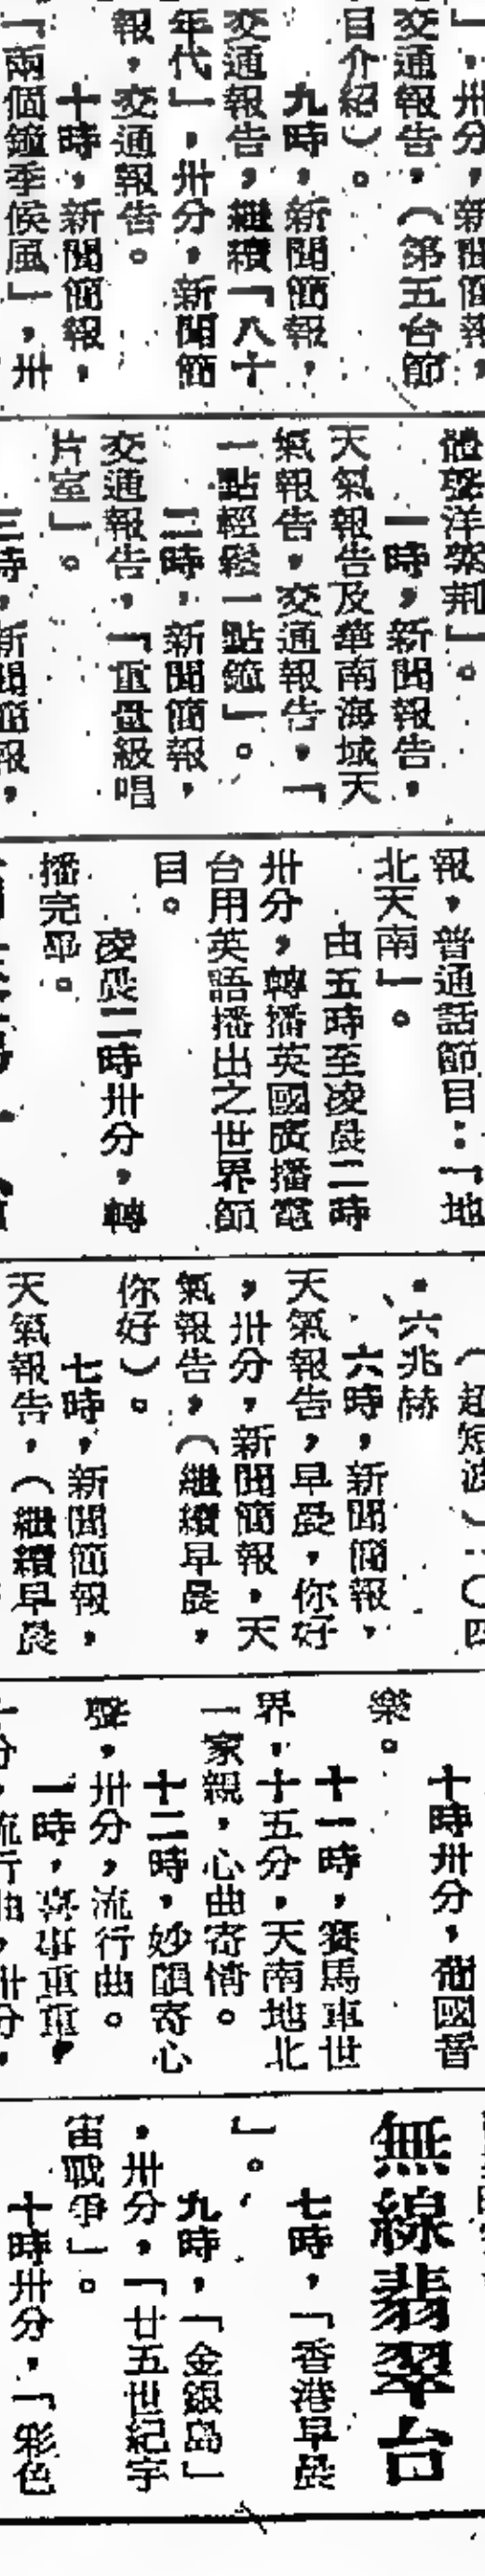 」，卅分，新聞簡報，
交通報告，（第五台節
目介紹）。
九時，新聞簡報，
交通報告，繼續「八十
年代」，卅分，新聞簡
報，交通報告。
十時，新聞簡報，
「兩個鐘季候風」，卅
體聲洋樂荊」。
一時，新聞報告，
天氣報告及華南海域天
氣報告，交通報告，「
一點輕鬆一點鐘」。
二時，新聞簡報，
交通報告，「重量級唱
片室」。
三時，新聞簡報，
報，普通話節目：「地
北天南」。
由五時至凌晨二時
卅分，轉播英國廣播電
台用英語播出之世界節
目。
凌晨二時卅分，轉
播完畢。
（超短波）：〇四
・六兆赫
六時，新聞簡報，
天氣報告，早晨，你好
，卅分，新聞簡報，天
氣報告，（繼續早晨，
你好）。
七時，新聞簡報，
天氣報告，（繼續早晨
十時卅分，葡國音
樂。
十一時，賽馬車世
界，十五分，天南地北
一家親，心曲寄情。
十二時，妙韻寄心
聲，卅分，流行曲。
一時，喜事重重，
十分，流行曲，卅分，
無線翡翠台
七時，「香港早晨
」。
九時，「金銀島」
，卅分，「廿五世紀宇
宙戰爭」。
十時卅分，「彩色